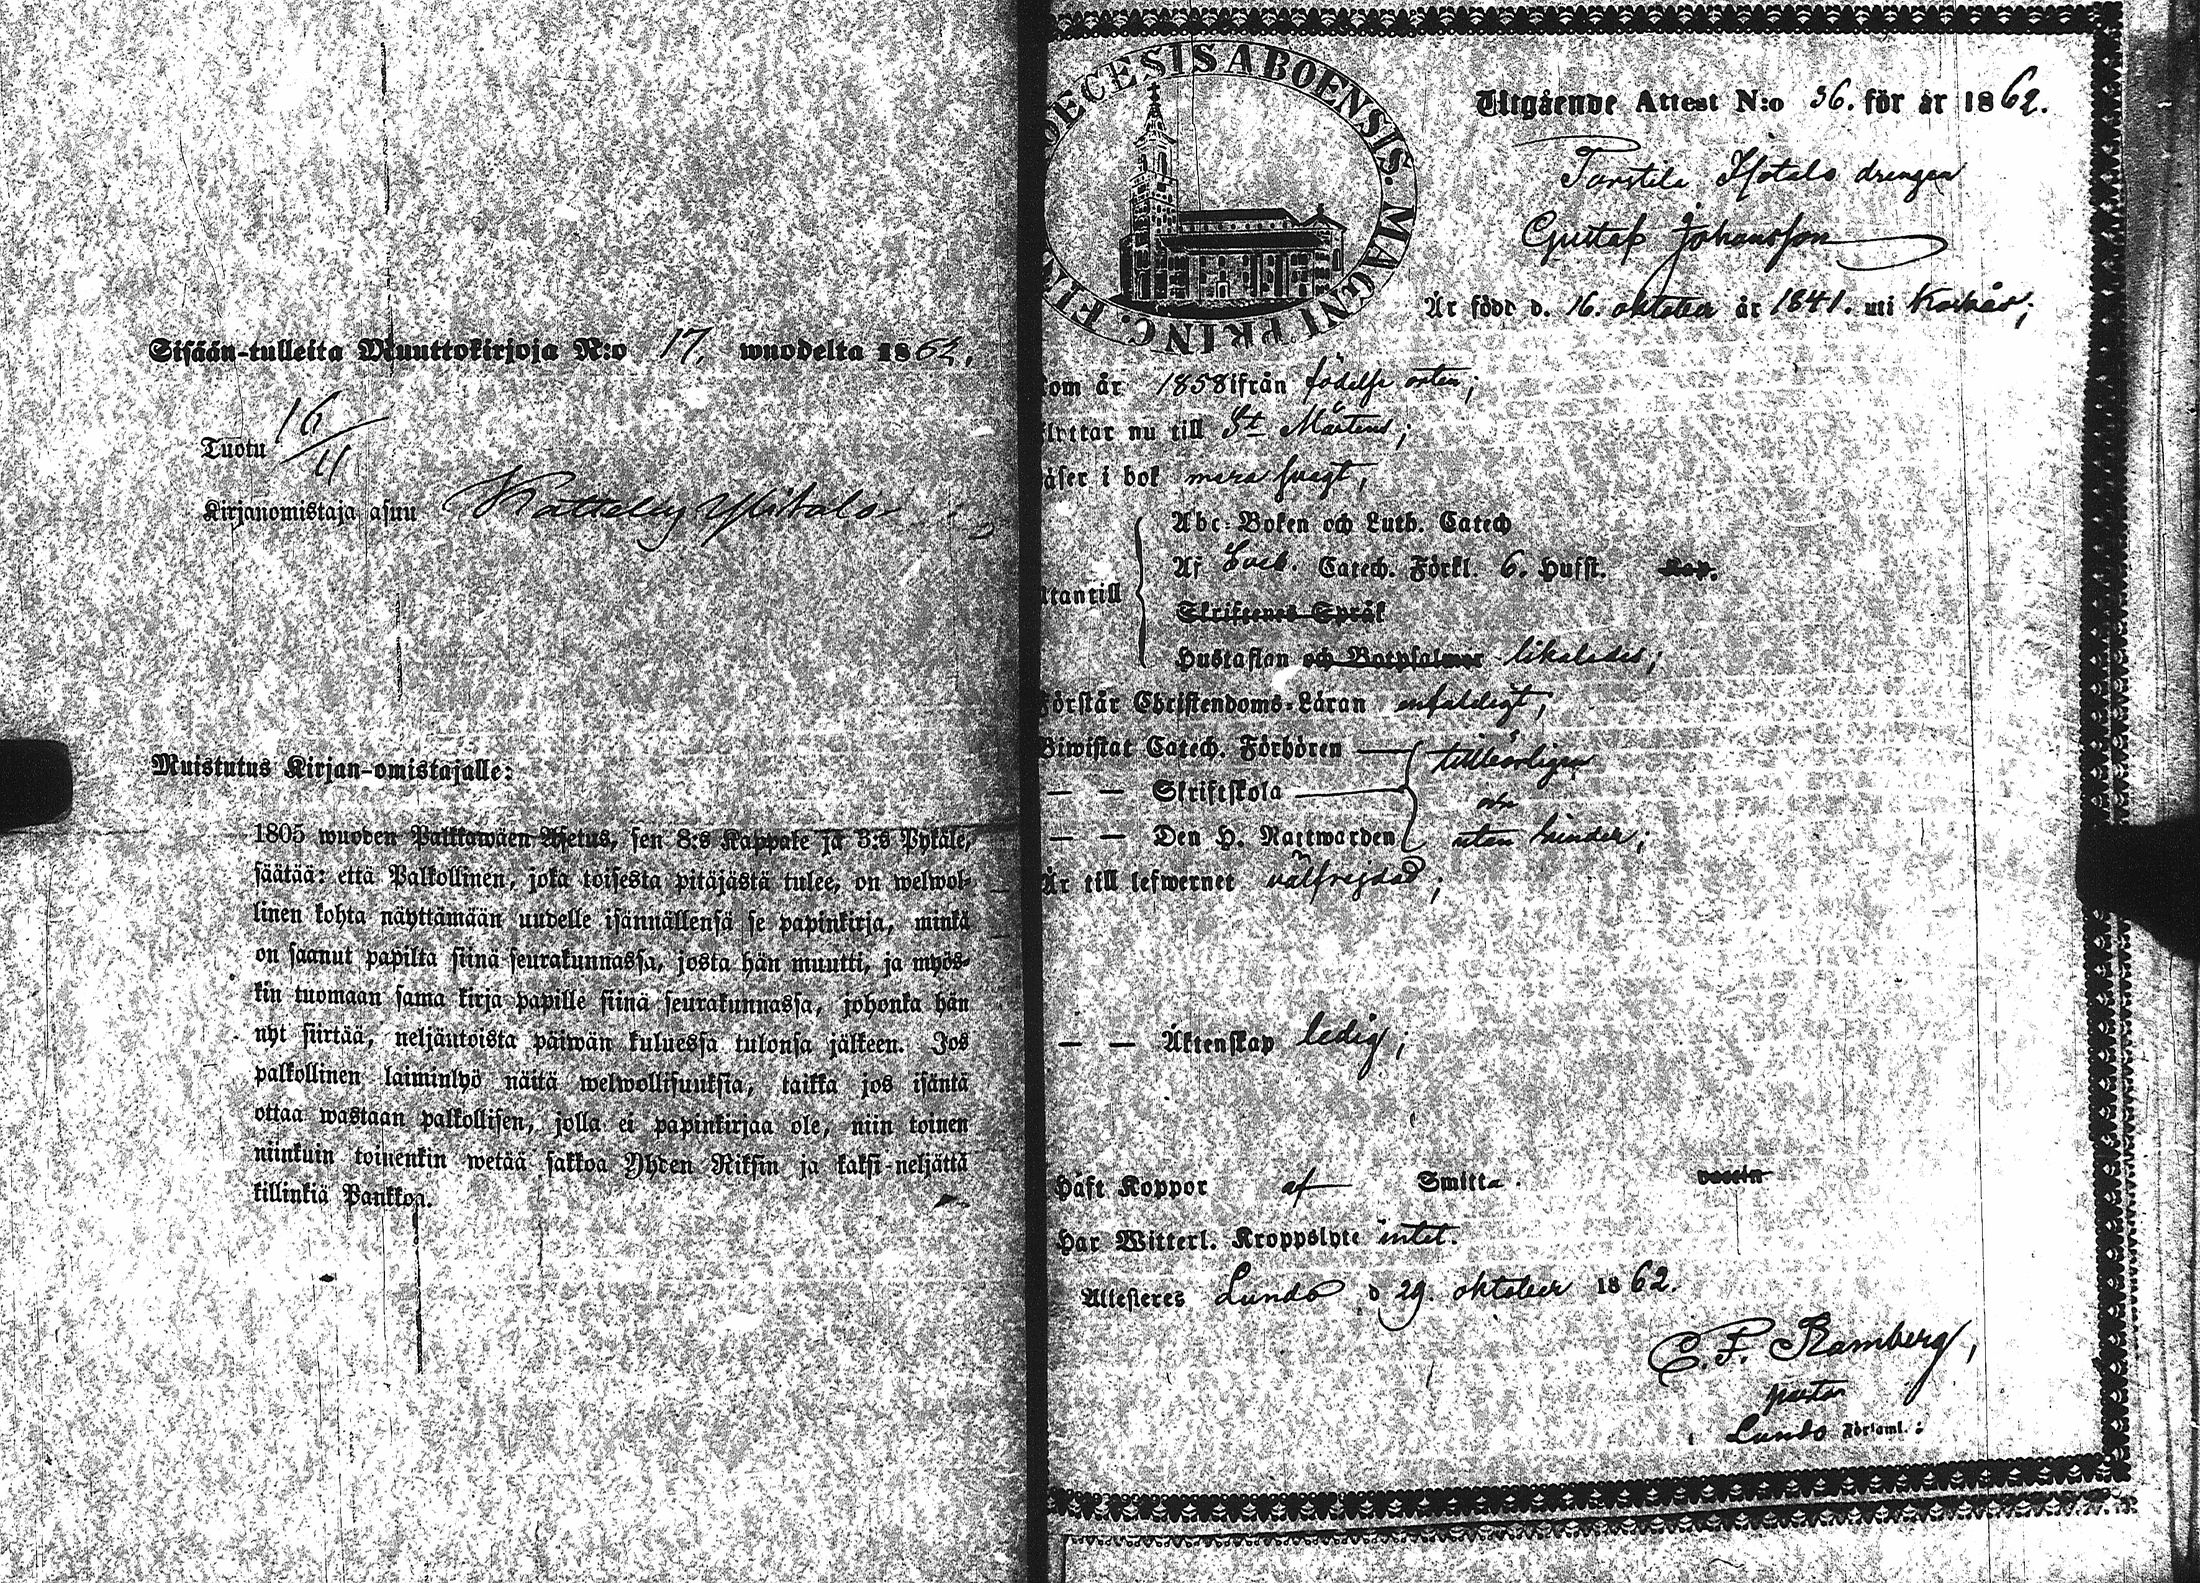 Sisään-tulleita Muuttokirjoja N:o 17. wuodelta 1862.
Tuotu 16/11
Kirjanomistaja asuu
Muistutus Kirjan-omistajalle:
1805 wuoden Palkkawäen Asetus, sen 8:s Kappale ja 3:s Pykäle,
säätää: että Palkollinen, joka toisesta pitäjästä tulee, on welwol-
linen kohta näyttämään uudelle isännällensä se papinkirja, minkä
on saanut papilta siinä seurakunnassa, josta hän muutti, ja myös-
kin tuomaan sama kirja papille siinä seurakunnassa, johonka hän
nyt siirtää, neljäntoista päiwän kuluessa tulonsa jälkeen. Jos
palkollinen laiminlyö näitä welwollisuuksia, taikka jos isäntä
ottaa wastaan palkollisen, jolla ei papinkirjaa ole, niin toinen
niinkuin toinenkin wetää sakkoa Yhden Riksin ja kaksi-neljättä
killinkiä Pankkoa.
DECESIS ABOENSIS. MAGNI PRINC. FIN
Utgående Attest N:o 36. för år 1862.
Torstila drengen
Gustaf Johansson
Är född d. 16. oktober år 1841. uti
kom år 1858 ifrån födelse orten;
flyttar nu till St Mårtens;
läser i bok mera svagt,
Abc-Boken och Luth. Catech
Af Sveb. Catech. Förkl. 6. Hufst. Kap.
Utantill
Skriftenes Språk
Hustaflan och Botpsalmer likaledes;
Förstår Christendoms-Läran enfaldigt,
Biwistat Catech. Förhören tillbörligen
— — Skriftskola och
— — Den H. Nattwarden utan hinder;
Är till lefwernet välfrejdad;
— — Äktenskap ledig;
Haft Koppor af Smitta. vaccin
Har Witterl. Kroppslyte intet.
Attesteres Lundo d 29. oktober 1862.
C. F. Ramberg,
pastor
i Lundo Förſaml.: